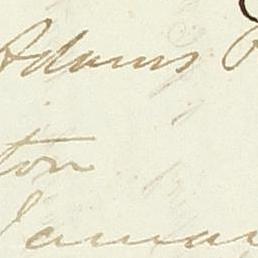 Adams
ton
Januar